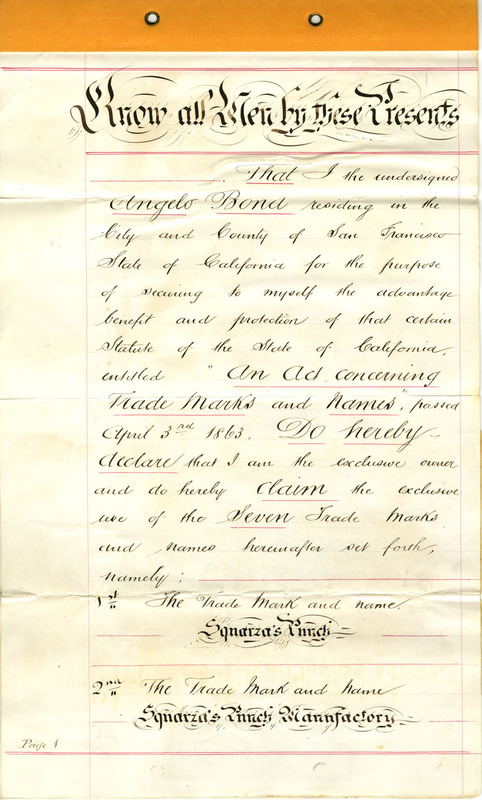 Know all Men by these Presents
That I the undersigned
Angelo Bond residing in the
City and County of San Francisco
State of California for the purpose
of securing to myself the advantage
benefit and protection of that certain
Statute of the State of California,
entitled "An Act concerning
Trade Marks and Names", passed
April 3rd 1863. Do hereby
declare that I am the exclusive owner
and do hereby claim the exclusive
use of the Seven Trade Marks
and names hereinafter set forth,
namely;
1st The Trade Mark and name.
Squarza's Punch
2nd The Trade Mark and Name
Squarza's Punch Manufactory
Page 1